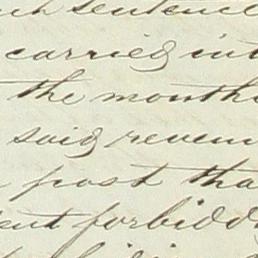 sentence
carried int
the months
said revenu
post tha
forbidd